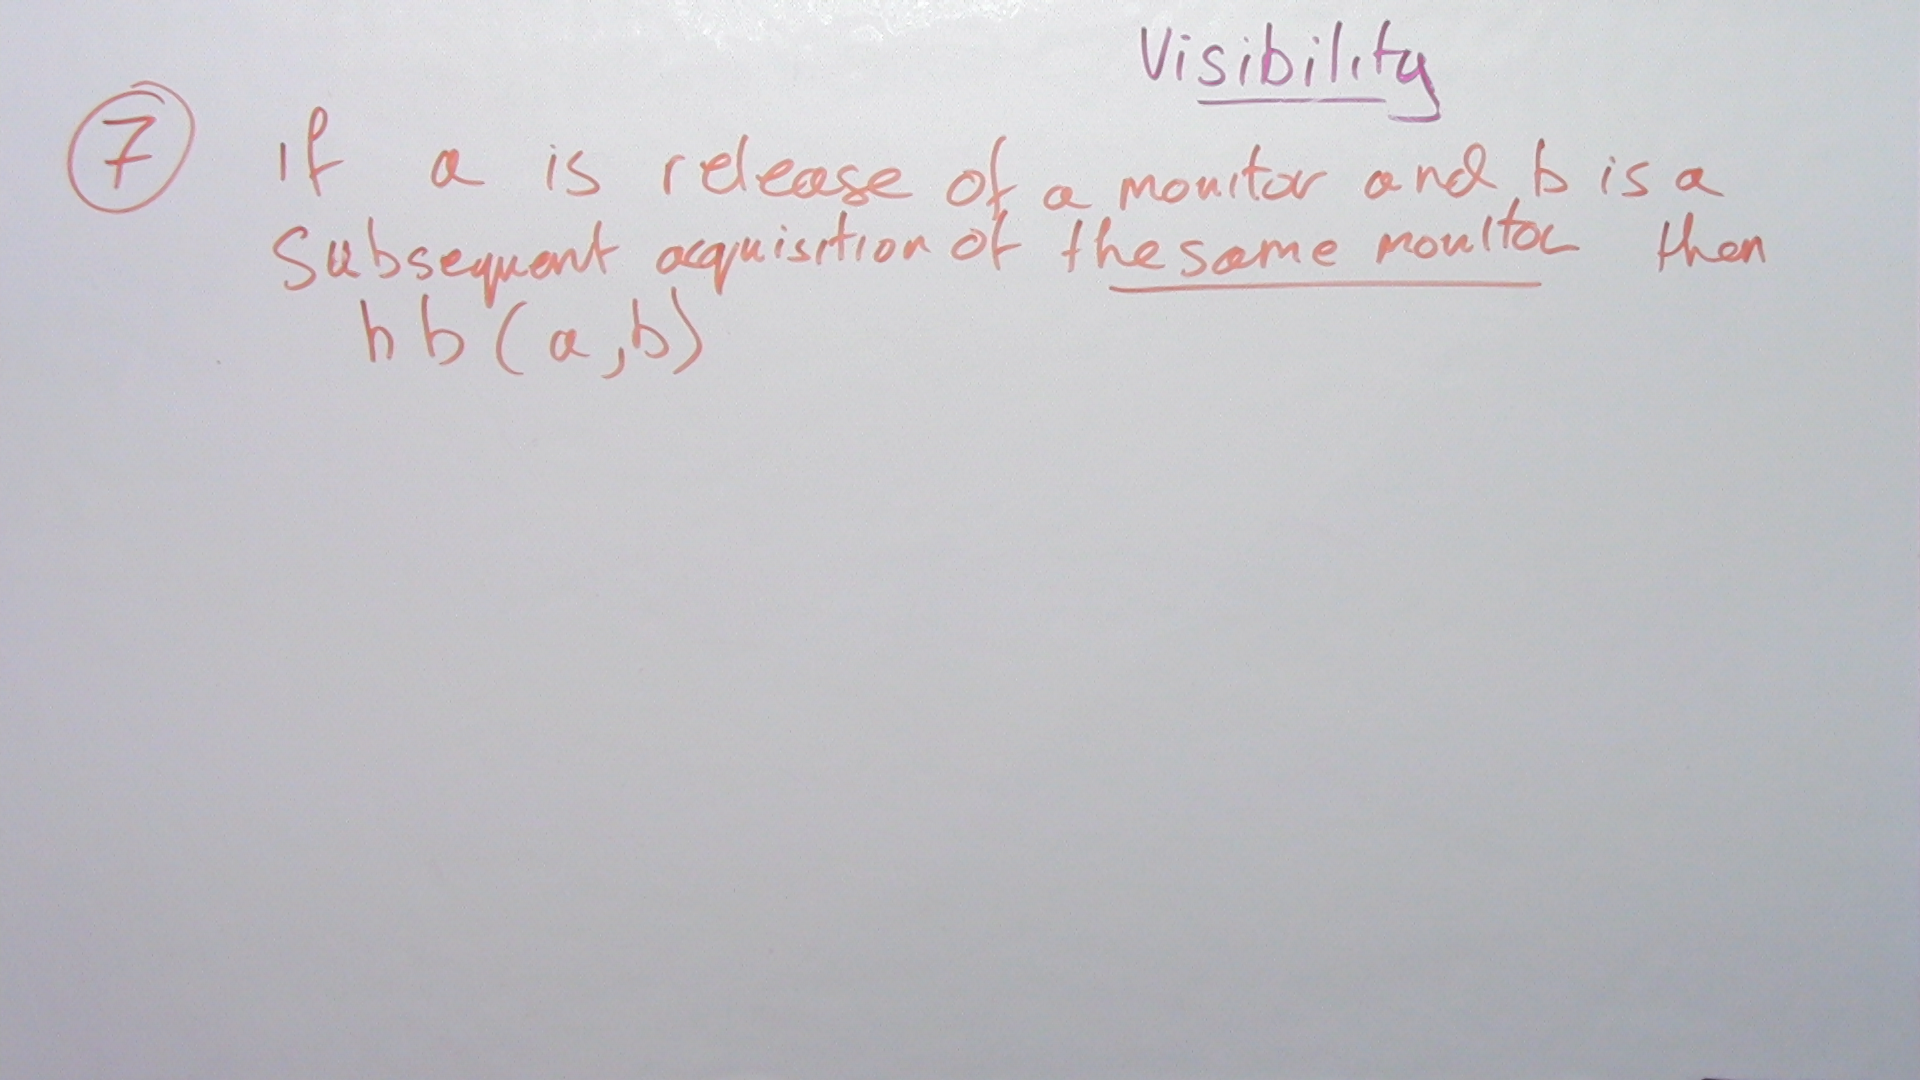 Visibility
7 if a is release of a monitor and b is a
Subsequent acquisition of the same monitor then
hb (a,b)